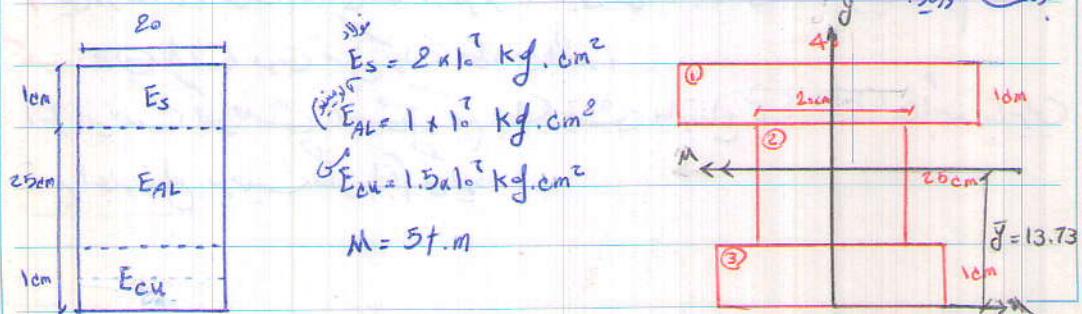 20
1cm
25cm
1cm
E_S
E_AL
E_cu
فولاد
E_S = 2×10^6 kgf.cm²
E_AL = 1×10^6 kgf.cm²
مس
E_cu = 1.5×10^6 kgf.cm²
M = 5t.m
y
40
①
20cm
1cm
②
M
25cm
ȳ = 13.73
③
1cm